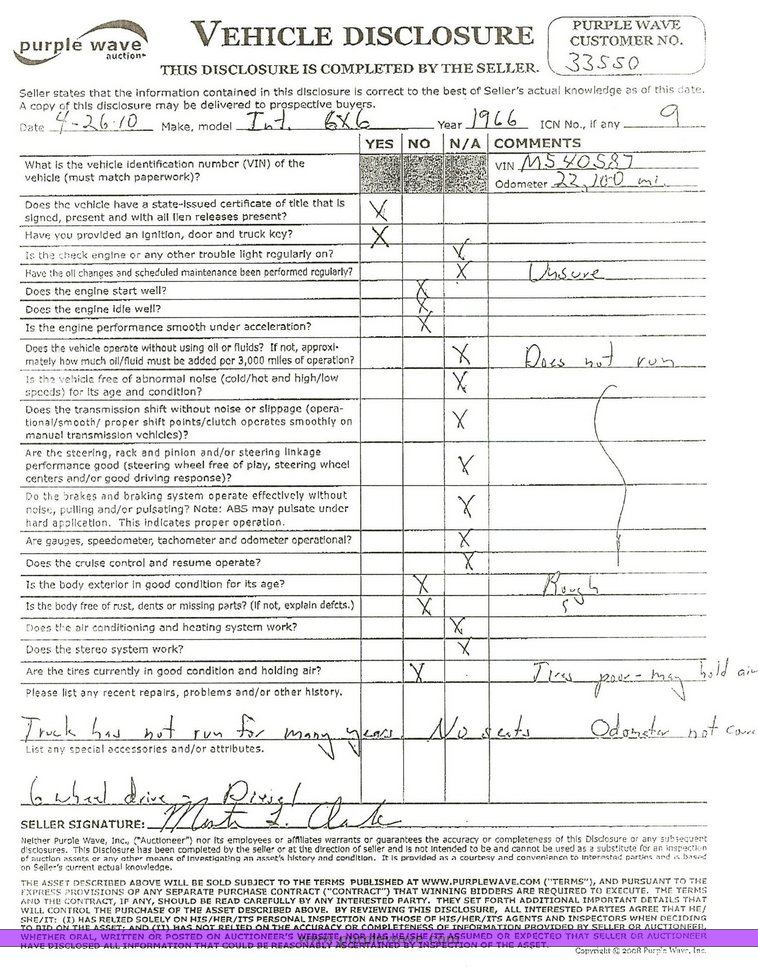 purple wave
auction
VEHICLE DISCLOSURE
THIS DISCLOSURE IS COMPLETED BY THE SELLER.
PURPLE WAVE
CUSTOMER NO.
33550
Seller states that the information contained in this disclosure is correct to the best of Seller's actual knowledge as of this date.
A copy of this disclosure may be delivered to prospective buyers.
Date 4-26-10 Make, model Int. 6X6 Year 1966 ICN No., if any 9
YES NO N/A COMMENTS
What is the vehicle identification number (VIN) of the
vehicle (must match paperwork)?
VIN M540587
Odometer 22,100 mi.
Does the vehicle have a state-issued certificate of title that is
signed, present and with all lien releases present? X
Have you provided an ignition, door and truck key? X
Is the check engine or any other trouble light regularly on? X
Have the oil changes and scheduled maintenance been performed regularly? X Unsure
Does the engine start well? X
Does the engine idle well? X
Is the engine performance smooth under acceleration? X
Does the vehicle operate without using oil or fluids? If not, approxi-
mately how much oil/fluid must be added per 3,000 miles of operation? X Does not run
Is the vehicle free of abnormal noise (cold/hot and high/low
speeds) for its age and condition? X
Does the transmission shift without noise or slippage (opera-
tional/smooth/ proper shift points/clutch operates smoothly on
manual transmission vehicles)? X
Are the steering, rack and pinion and/or steering linkage
performance good (steering wheel free of play, steering wheel
centers and/or good driving response)? X
Do the brakes and braking system operate effectively without
noise, pulling and/or pulsating? Note: ABS may pulsate under
hard application. This indicates proper operation. X
Are gauges, speedometer, tachometer and odometer operational? X
Does the cruise control and resume operate? X
Is the body exterior in good condition for its age? X Rough
Is the body free of rust, dents or missing parts? (If not, explain defcts.) X
Does the air conditioning and heating system work? X
Does the stereo system work? X
Are the tires currently in good condition and holding air? X Tires poor - may hold air
Please list any recent repairs, problems and/or other history.
Truck has not run for many years. No seats Odometer not
List any special accessories and/or attributes.
6 wheel drive - Diesel
SELLER SIGNATURE:
Neither Purple Wave, Inc., ("Auctioneer") nor its employees or affiliates warrants or guarantees the accuracy or completeness of this Disclosure or any subsequent
disclosures. This Disclosure has been completed by the seller or at the direction of seller and is not intended to be and cannot be used as a substitute for an inspection
of auction assets or any other means of investigating an asset's history and condition. It is provided as a courtesy and convenience to interested parties and is based
on Seller's current actual knowledge.
THE ASSET DESCRIBED ABOVE WILL BE SOLD SUBJECT TO THE TERMS PUBLISHED AT WWW.PURPLEWAVE.COM ("TERMS"), AND PURSUANT TO THE
EXPRESS PROVISIONS OF ANY SEPARATE PURCHASE CONTRACT ("CONTRACT") THAT WINNING BIDDERS ARE REQUIRED TO EXECUTE. THE TERMS
AND THE CONTRACT, IF ANY, SHOULD BE READ CAREFULLY BY ANY INTERESTED PARTY. THEY SET FORTH ADDITIONAL IMPORTANT DETAILS THAT
WILL CONTROL THE PURCHASE OF THE ASSET DESCRIBED ABOVE. BY REVIEWING THIS DISCLOSURE, ALL INTERESTED PARTIES AGREE THAT HE/
SHE/IT: (I) HAS RELIED SOLELY ON HIS/HER/ITS PERSONAL INSPECTION AND THOSE OF HIS/HER/ITS AGENTS AND INSPECTORS WHEN DECIDING
TO BID ON THE ASSET; AND (II) HAS NOT RELIED ON THE ACCURACY OR COMPLETENESS OF INFORMATION PROVIDED BY SELLER OR AUCTIONEER,
WHETHER ORAL, WRITTEN OR POSTED ON AUCTIONEER'S ASSUMED OR EXPECTED THAT SELLER OR AUCTIONEER
HAVE DISCLOSED ALL INFORMATION THAT COULD BE REASONABLY ASCERTAINED BY INSPECTION OF THE ASSET.
Copyright © 2008 Purple Wave, Inc.